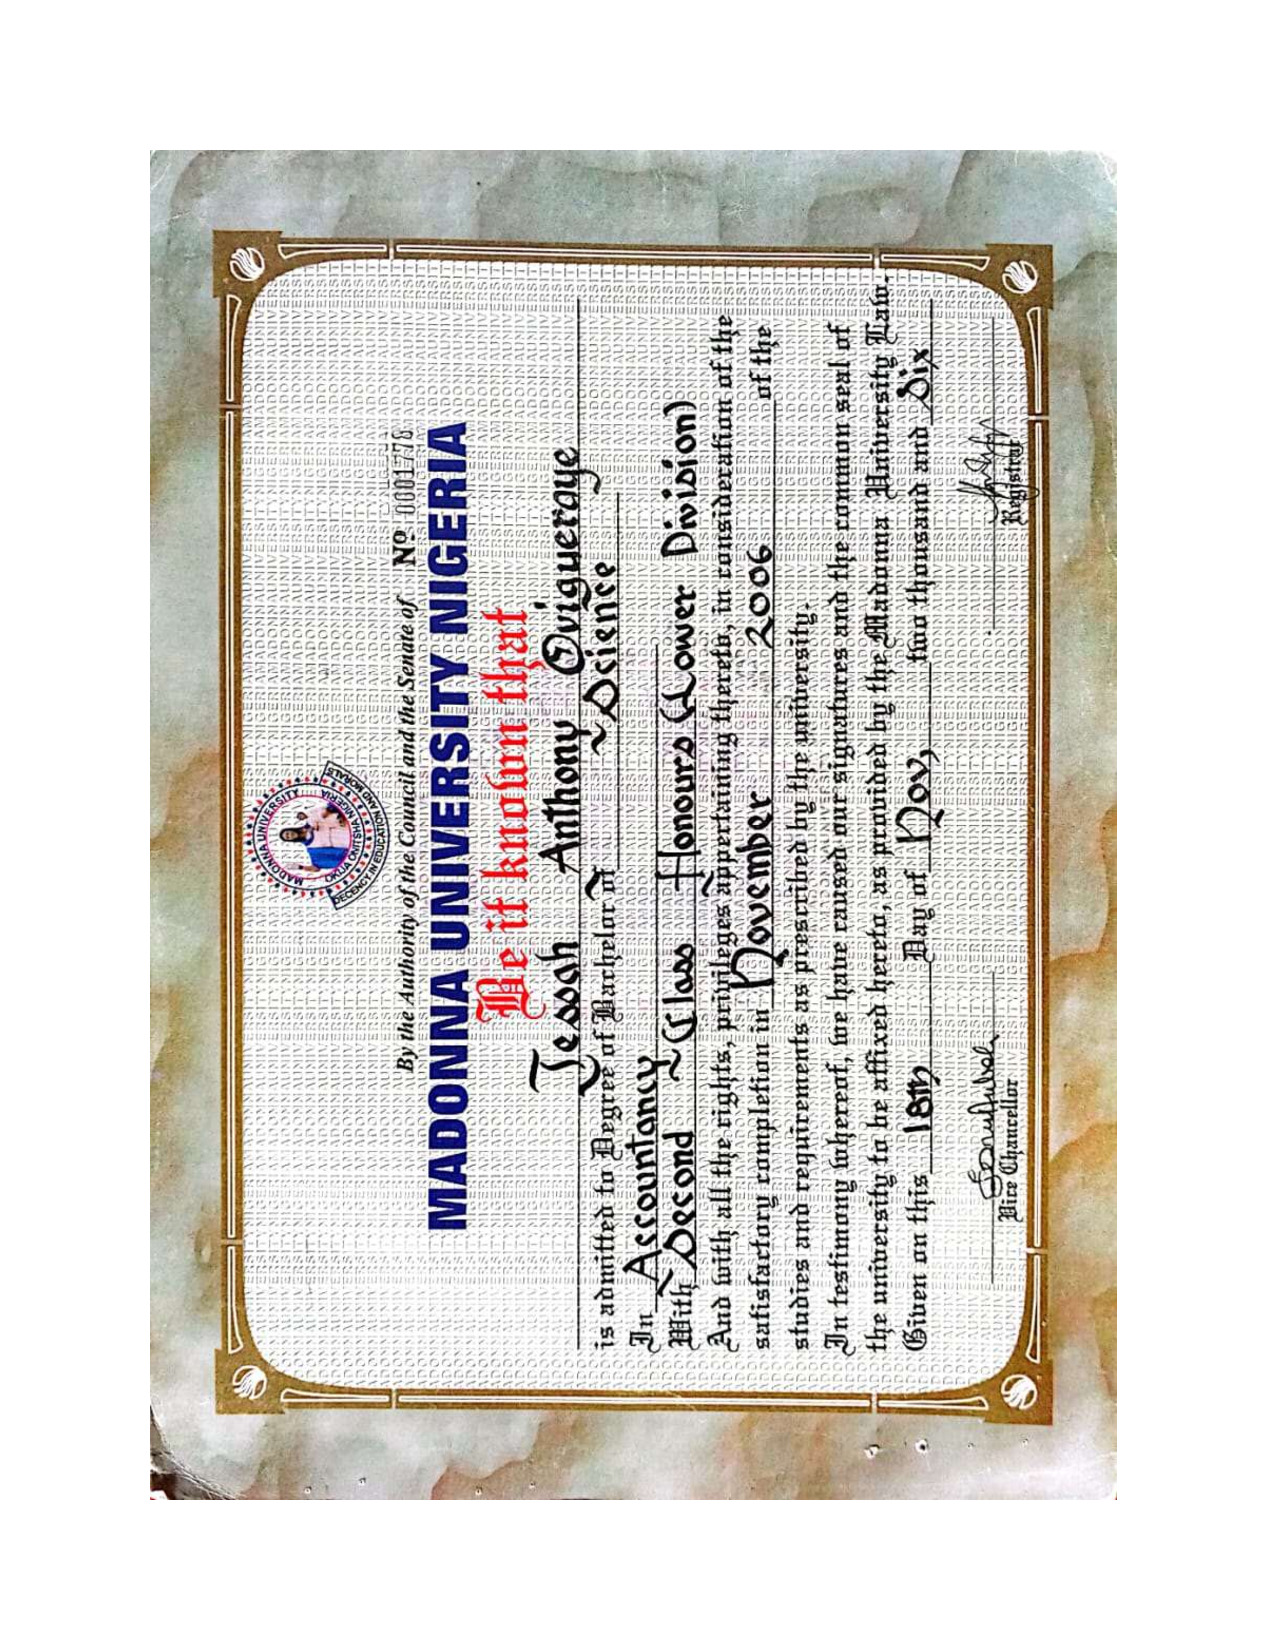 MADONNA UNIVERSITY
OKIJA ONITSHA NIGERIA
DECENCY IN EDUCATION AND MORALS
By the Authority of the Council and the Senate of Nº 0001778
MADONNA UNIVERSITY NIGERIA
Be it known that
Jessah Anthony Ovigueraye
is admitted to Degree of Bachelor of Science
In Accountancy
With Second Class Honours (Lower Division)
And with all the rights, privileges appertaining thereto, in consideration of the
satisfactory completion in November 2006 of the
studies and requirements as prescribed by the university.
In testimony whereof, we have caused our signatures and the common seal of
the university to be affixed hereto, as provided by the Madonna University Law.
Given on this 18th Day of Nov, two thousand and Six
Vice Chancellor Registrar